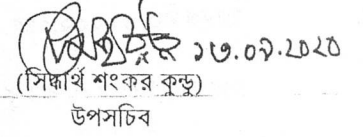 ১৩.০৯.২০২০
(সিদ্ধার্থ শংকর কুন্ডু)
উপসচিব